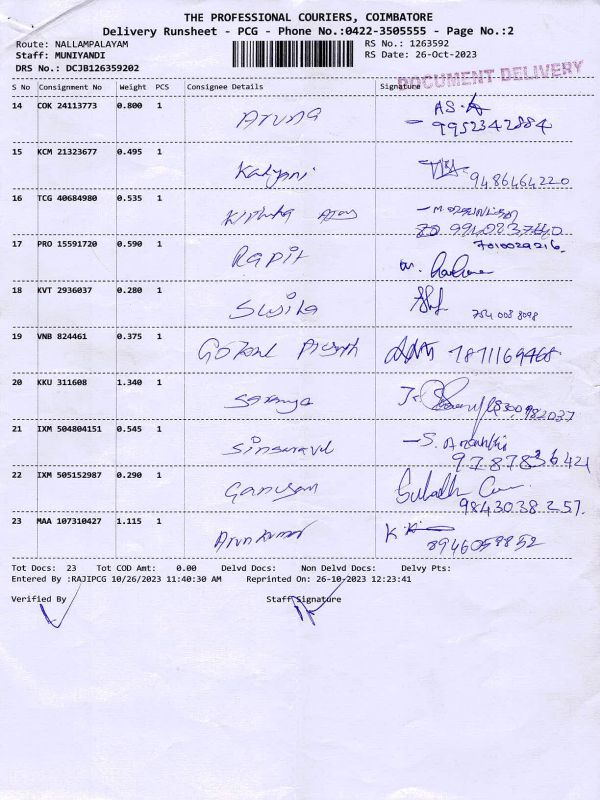 THE PROFESSIONAL COURIERS, COIMBATORE
Delivery Runsheet - PCG - Phone No.:0422-3505555 - Page No.:2
Route: NALLAMPALAYAM RS No.: 1263592
Staff: MUNIYANDI RS Date: 26-Oct-2023
DRS No.: DCJB126359202
DOCUMENT DELIVERY
S No Consignment No Weight PCS Consignee Details Signature
14 COK 24113773 0.800 1 Aruna AS.A
9952342884
15 KCM 21323677 0.495 1 Kalyani
9486464220
16 TCG 40684980 0.535 1
17 PRO 15591720 0.590 1 7010029216
18 KVT 2936037 0.280 1 Sujita
754 008 8098
19 VNB 824461 0.375 1 Gokul 7871169468
20 KKU 311608 1.340 1 Saranya
21 IXM 504804151 0.545 1
9787836421
22 IXM 505152987 0.290 1 Ganesan
9843038257.
23 MAA 107310427 1.115 1 Arunkumar
8946059852
Tot Docs: 23 Tot COD Amt: 0.00 Delvd Docs: Non Delvd Docs: Delvy Pts:
Entered By :RAJIPCG 10/26/2023 11:40:30 AM Reprinted On: 26-10-2023 12:23:41
Verified By Staff Signature